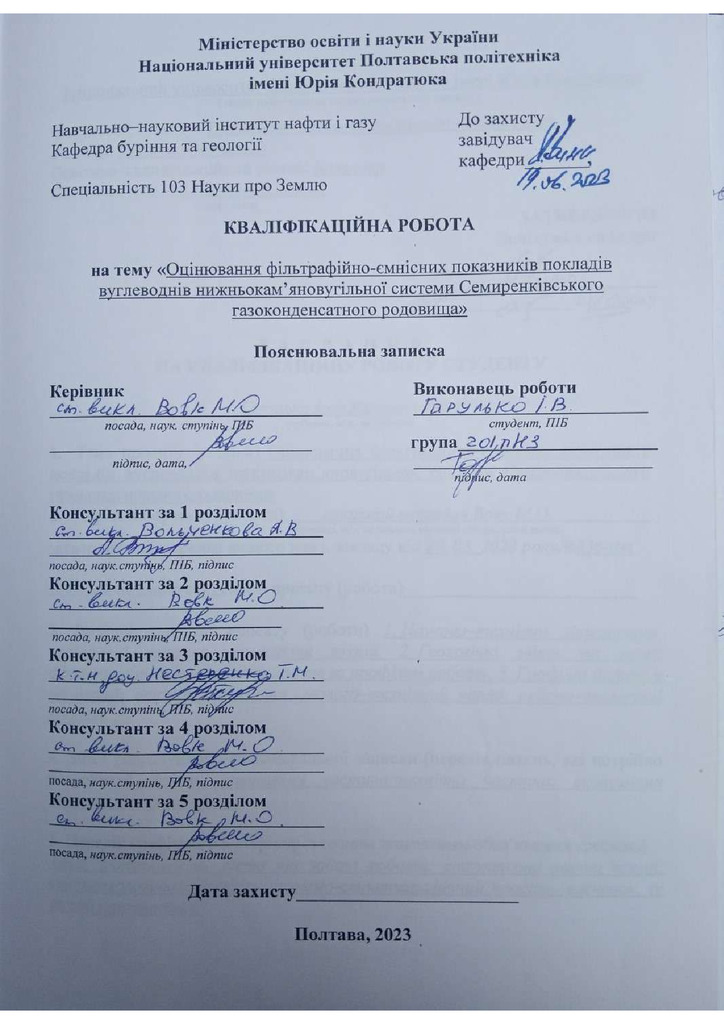 Міністерство освіти і науки України
Національний університет Полтавська політехніка
імені Юрія Кондратюка
Навчально–науковий інститут нафти і газу
Кафедра буріння та геології
Спеціальність 103 Науки про Землю
До захисту
завідувач
кафедри
19.06.2023
КВАЛІФІКАЦІЙНА РОБОТА
на тему «Оцінювання фільтрафійно-ємнісних показників покладів
вуглеводнів нижньокам’яновугільної системи Семиренківського
газоконденсатного родовища»
Пояснювальна записка
Керівник
ст. викл. Вовк М.О
посада, наук. ступінь, ПІБ
підпис, дата,
Виконавець роботи
Гарулько І.В.
студент, ПІБ
група 201пНЗ
підпис, дата
Консультант за 1 розділом
ст. викл. Вольченкова А.В
посада, наук.ступінь, ПІБ, підпис
Консультант за 2 розділом
ст. викл. Вовк М.О
посада, наук.ступінь, ПІБ, підпис
Консультант за 3 розділом
к.т.н, доц. Нестеренко Т.М.
посада, наук.ступінь, ПІБ, підпис
Консультант за 4 розділом
ст. викл. Вовк М.О
посада, наук.ступінь, ПІБ, підпис
Консультант за 5 розділом
ст. викл. Вовк М.О.
посада, наук.ступінь, ПІБ, підпис
Дата захисту
Полтава, 2023